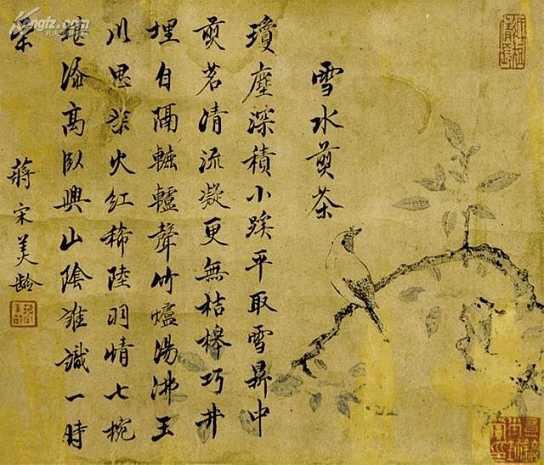 雪水煎茶
瓊塵深積小蹊平取雪鼎中
煎茗清流凝更無桔槔巧井
埋自隔轆轤聲竹爐湯沸玉
川思火紅稀陸羽情七椀
添高臥興山陰誰識一時
蔣宋美齡